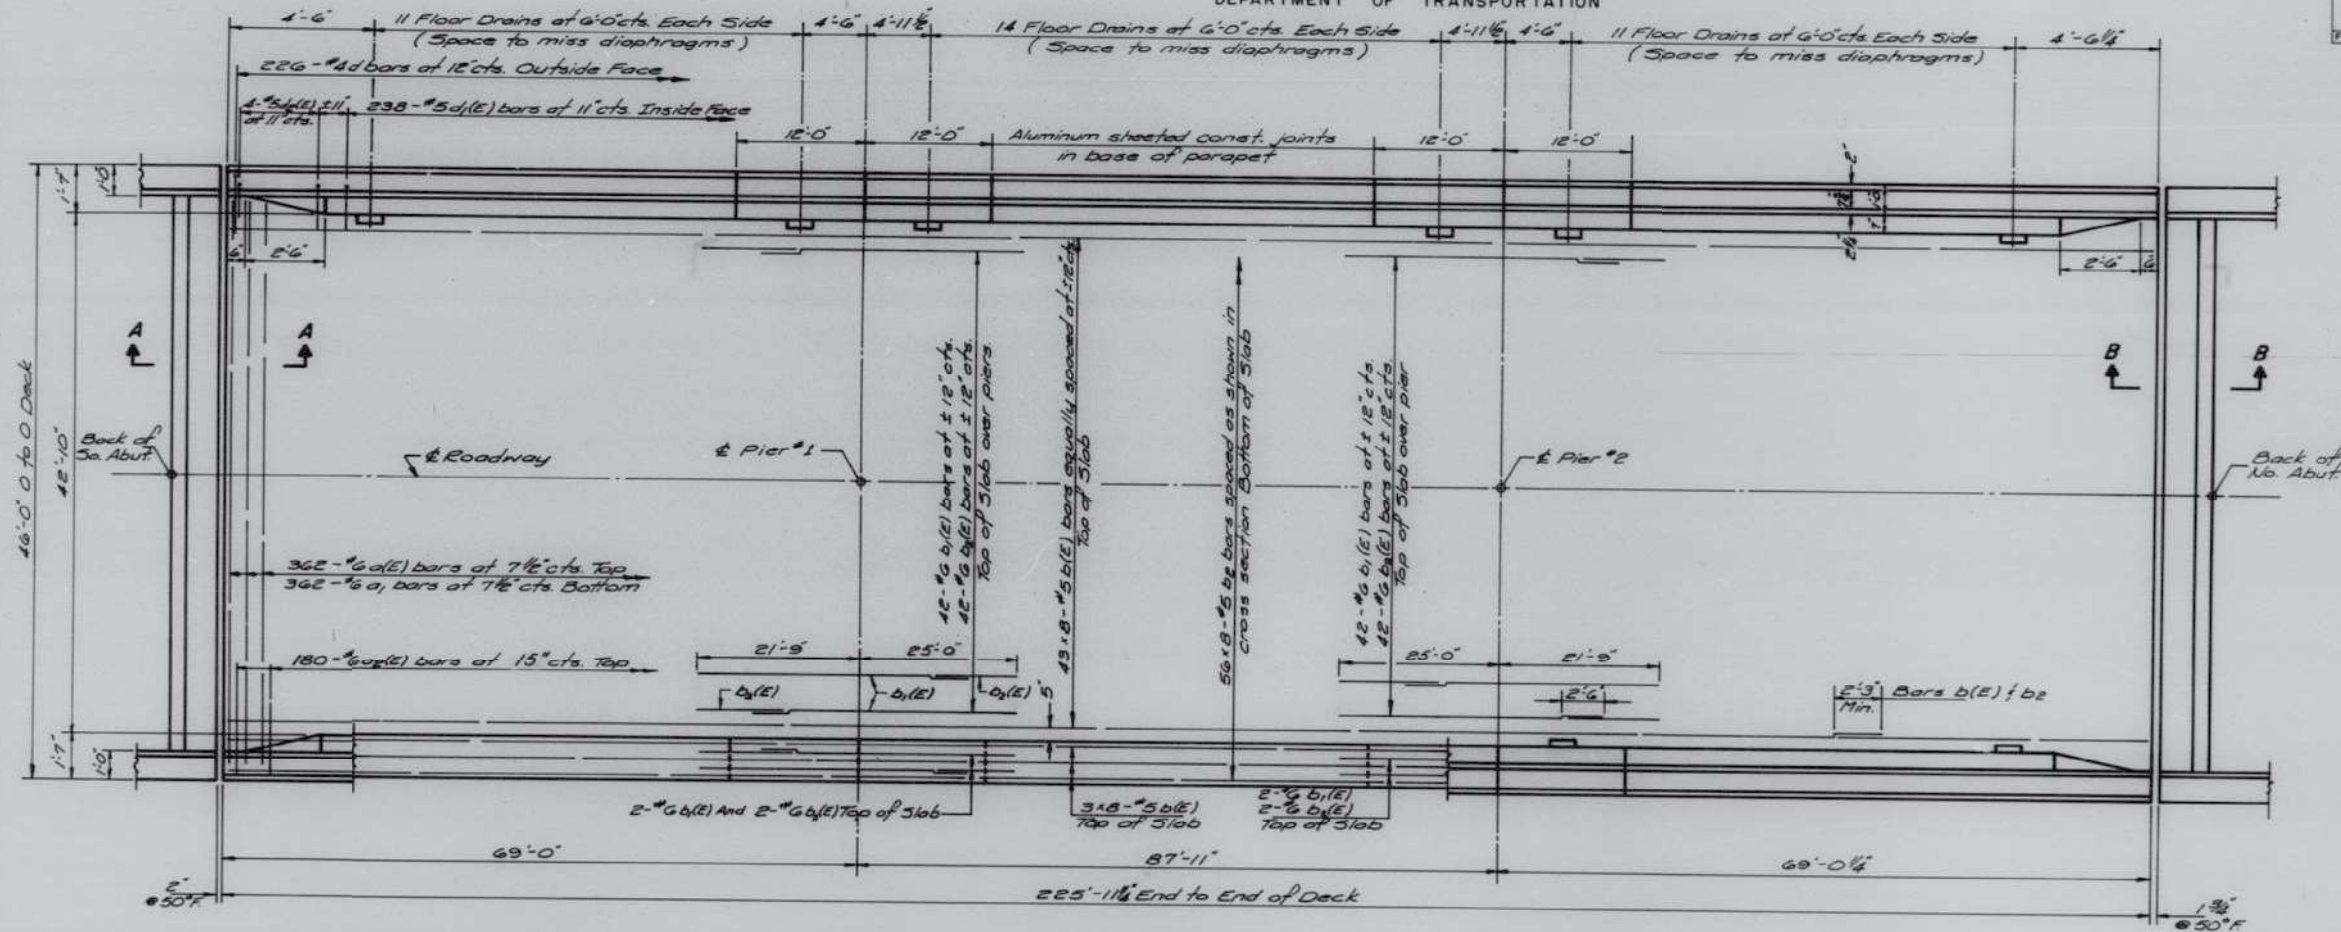 DEPARTMENT OF TRANSPORTATION
4'-6" 11 Floor Drains at 6'-0" cts. Each Side 4'-6" 4'-11½" 14 Floor Drains at 6'-0" cts. Each Side 4'-11½" 4'-6" 11 Floor Drains at 6'-0" cts. Each Side 4'-6¼"
(Space to miss diaphragms) (Space to miss diaphragms) (Space to miss diaphragms)
226-#4 d bars at 12" cts. Outside Face
4-#5 d₁(E) ±11" 238-#5 d₁(E) bars at 11" cts. Inside Face
at 11" cts.
12'-0" 12'-0" Aluminum sheeted const. joints 12'-0" 12'-0"
in base of parapet
1'-7" 1'-0"
2"
7"
6" 2'-6"
2'-6" 6"
A A
B B
46'-0" O to O Deck
42'-10"
Back of
So. Abut.
℄ Roadway
℄ Pier #1
℄ Pier #2
Back of
No. Abut.
42-#6 b₁(E) bars at ± 12" cts.
42-#6 b₃(E) bars at ± 12" cts.
Top of Slab over piers
49x8-#5 b(E) bars equally spaced at ±12" cts.
Top of Slab
56x8-#5 b₂ bars spaced as shown in
cross section Bottom of Slab
42-#6 b₁(E) bars at ± 12" cts.
42-#6 b₃(E) bars at ± 12" cts.
Top of Slab over pier
362-#6 a(E) bars at 7½" cts. Top
362-#6 a₁ bars at 7½" cts. Bottom
180-#6 a₂(E) bars at 15" cts. Top
21'-9" 25'-0"
25'-0" 21'-9"
b₃(E) b₁(E) b₃(E) 5"
2'-6"
2'-3" Bars b(E) & b₂
Min.
1'-7" 1'-0"
2-#6 b₁(E) And 2-#6 b₃(E) Top of Slab
3x8-#5 b(E)
Top of Slab
2-#6 b₁(E)
2-#6 b₃(E)
Top of Slab
69'-0" 87'-11" 69'-0¼"
225'-11¼" End to End of Deck
2"
@ 50° F.
1¾"
@ 50° F.